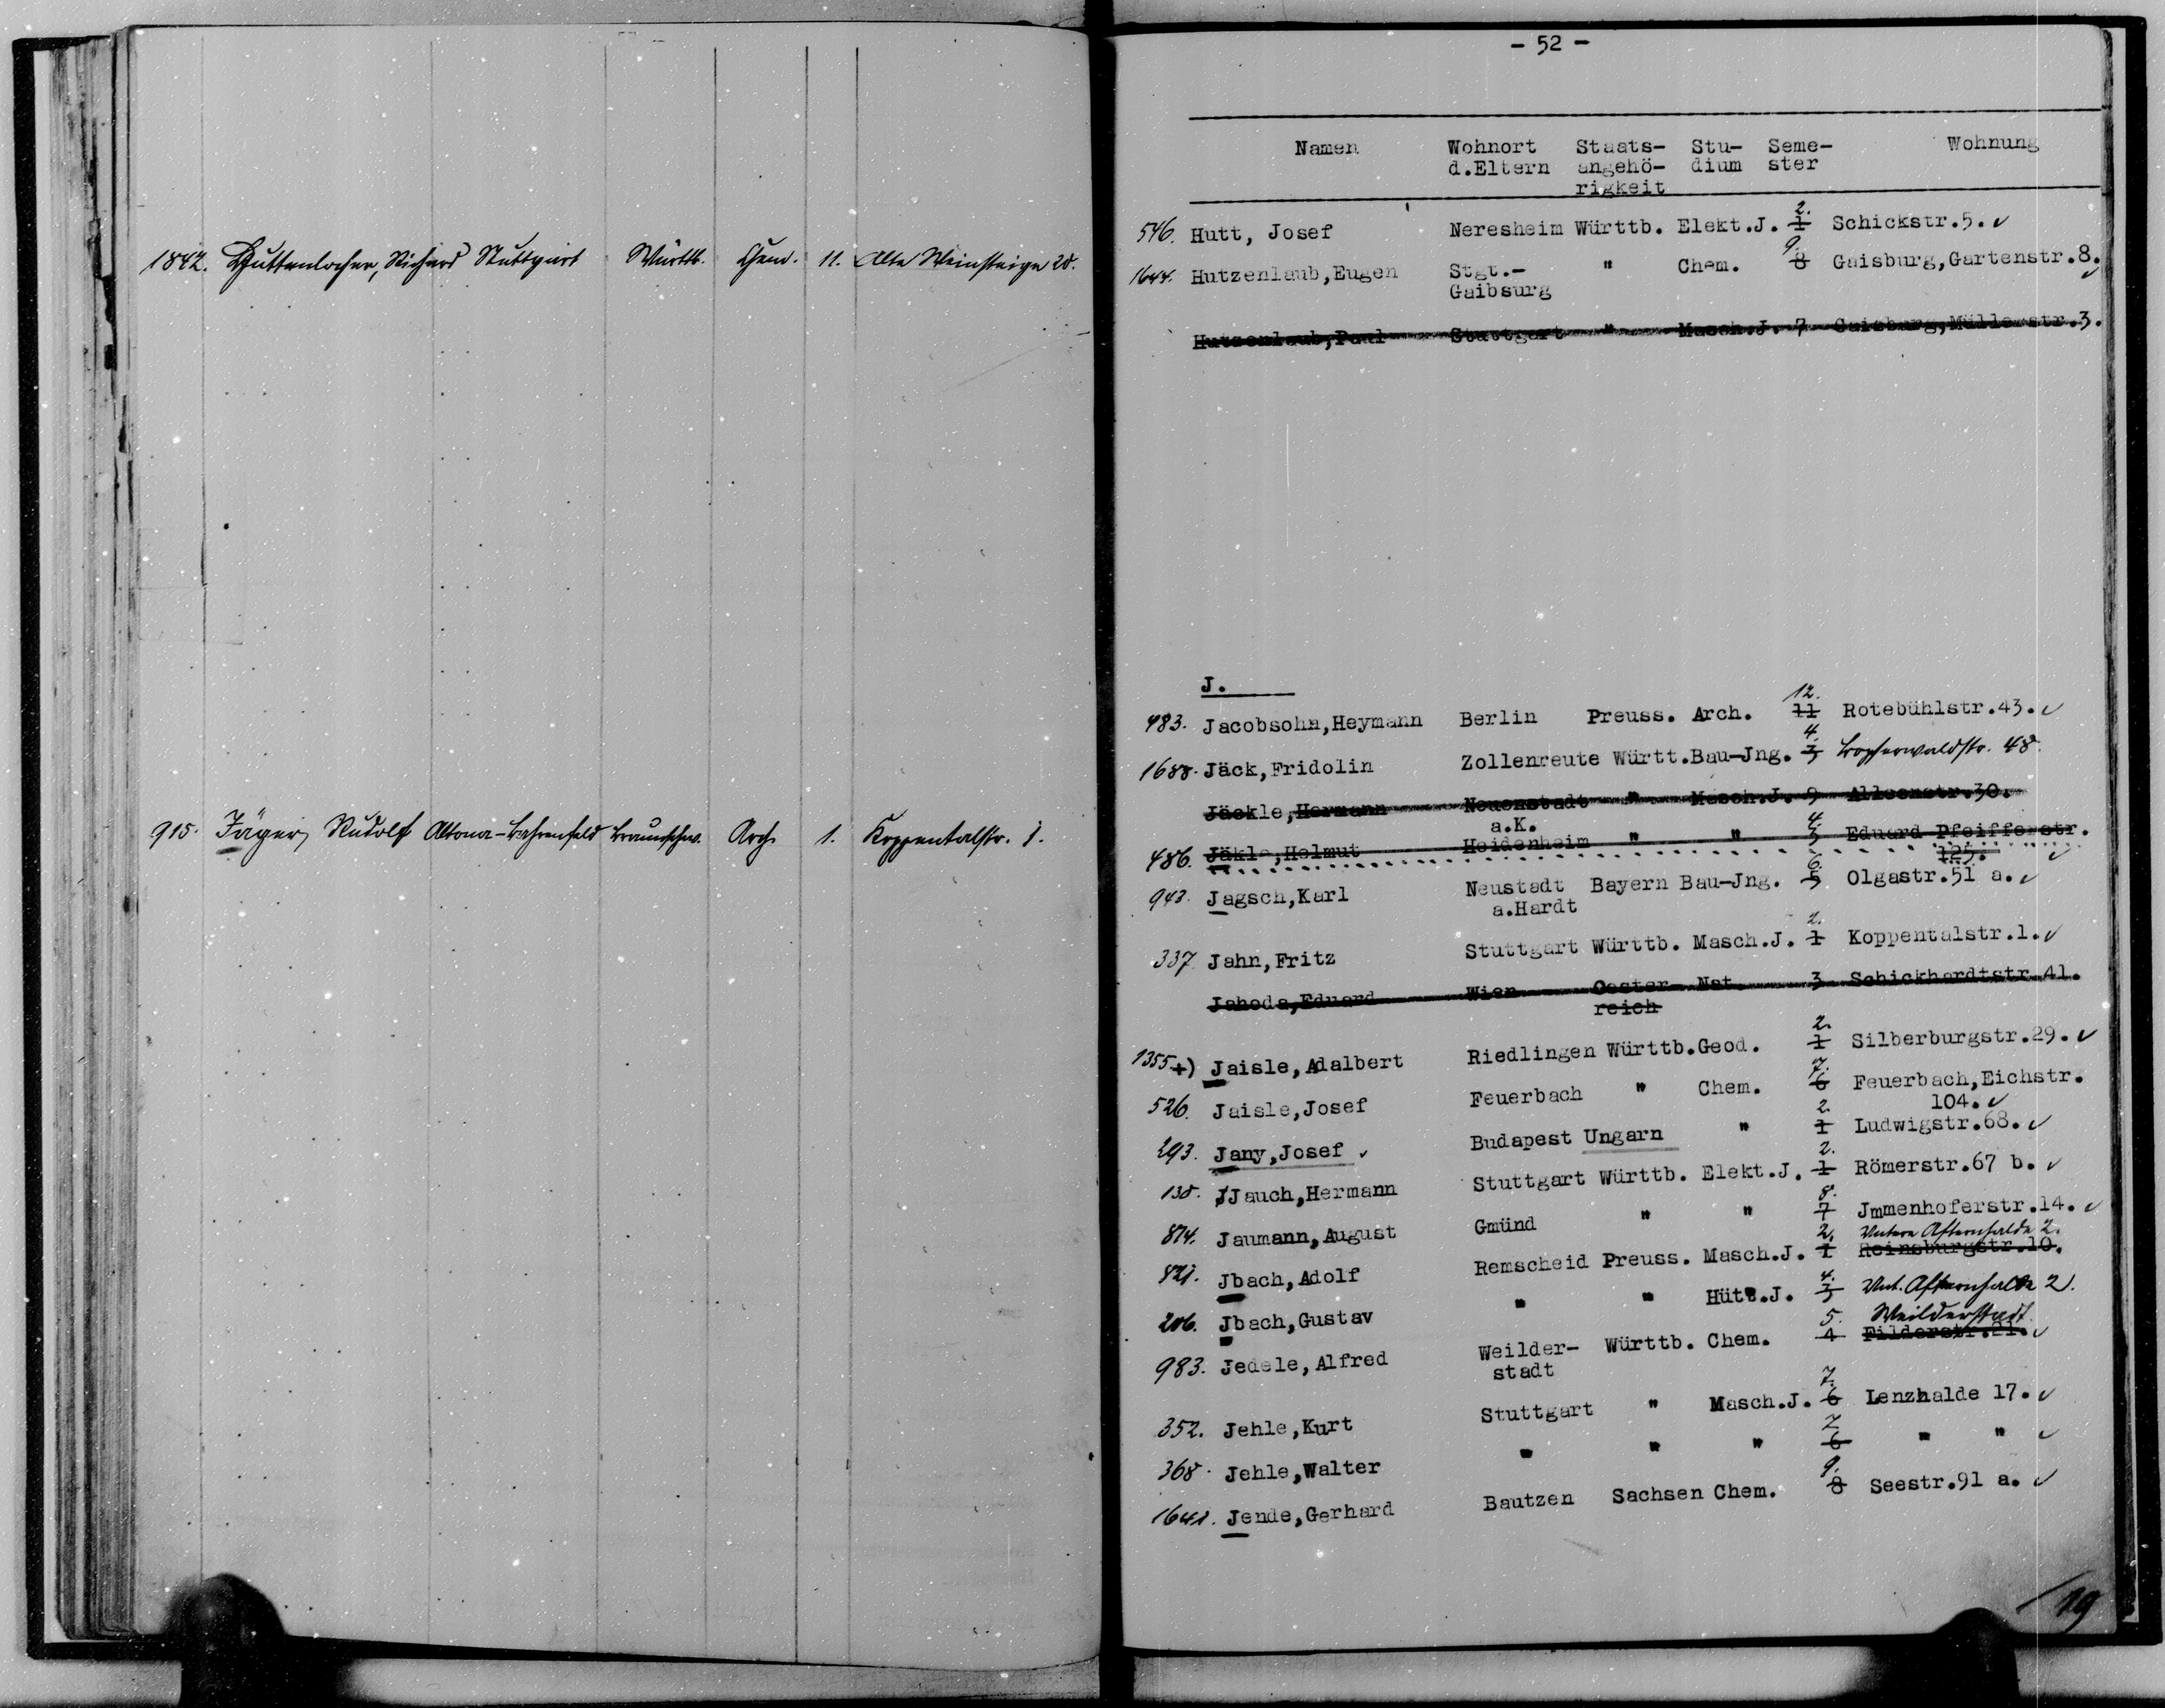 1842. Huttenlocher, Richard Stuttgart Württb. Chem. 11. Alte Weinsteige 20.
915. Jäger, Rudolf Altona-Bahrenfeld Braunschw. Arch. 1. Koppentalstr. 1.
- 52 -
Namen Wohnort Staats- Stu- Seme- Wohnung
d.Eltern angehö- dium ster
rigkeit
2.
546. Hutt, Josef Neresheim Württb. Elekt.J. 1 Schickstr.5. ✓
9.
1644. Hutzenlaub,Eugen Stgt.- " Chem. 8 Gaisburg,Gartenstr.8. ✓
Gaibsurg
Hutzenlaub,Paul Stuttgart " Masch.J. 7 Gaisburg,Müllerstr.3.
J.
12.
483. Jacobsohn,Heymann Berlin Preuss. Arch. 11 Rotebühlstr.43. ✓
4.
1688. Jäck,Fridolin Zollenreute Württ.Bau-Jng. 3 Bopserwaldstr. 48.
Jäckle,Hermann Neuenstadt " Masch.J. 9 Alleenstr.30.
a.K.
4.
486. Jäkle,Helmut Heidenheim " " 3 Eduard Pfeifferstr.
125. ✓
6.
943. Jagsch,Karl Neustadt Bayern Bau-Jng. 5 Olgastr.51 a. ✓
a.Hardt
2.
337. Jahn,Fritz Stuttgart Württb. Masch.J. 1 Koppentalstr.1. ✓
Jahoda,Eduard Wien Oester- Nat. 3 Schickhardtstr.41.
reich
2.
1355 +) Jaisle,Adalbert Riedlingen Württb.Geod. 1 Silberburgstr.29. ✓
7.
526. Jaisle,Josef Feuerbach " Chem. 6 Feuerbach,Eichstr.
104. ✓
2.
293. Jany,Josef ✓ Budapest Ungarn " 1 Ludwigstr.68. ✓
2.
138. Jauch,Hermann Stuttgart Württb. Elekt.J. 1 Römerstr.67 b. ✓
8.
874. Jaumann,August Gmünd " " 7 Jmmenhoferstr.14. ✓
2. Untere Afternhalde 2.
821. Jbach,Adolf Remscheid Preuss. Masch.J. 1 Reinsburgstr.10.
4.
206. Jbach,Gustav " " Hütt.J. 3 Unt. Afternhalde 2.
5. Weilderstadt
983. Jedele,Alfred Weilder- Württb. Chem. 4 Filderstr.21. ✓
stadt
7.
352. Jehle,Kurt Stuttgart " Masch.J. 6 Lenzhalde 17. ✓
7.
368. Jehle,Walter " " " 6 " " ✓
9.
1641. Jende,Gerhard Bautzen Sachsen Chem. 8 Seestr.91 a. ✓
19